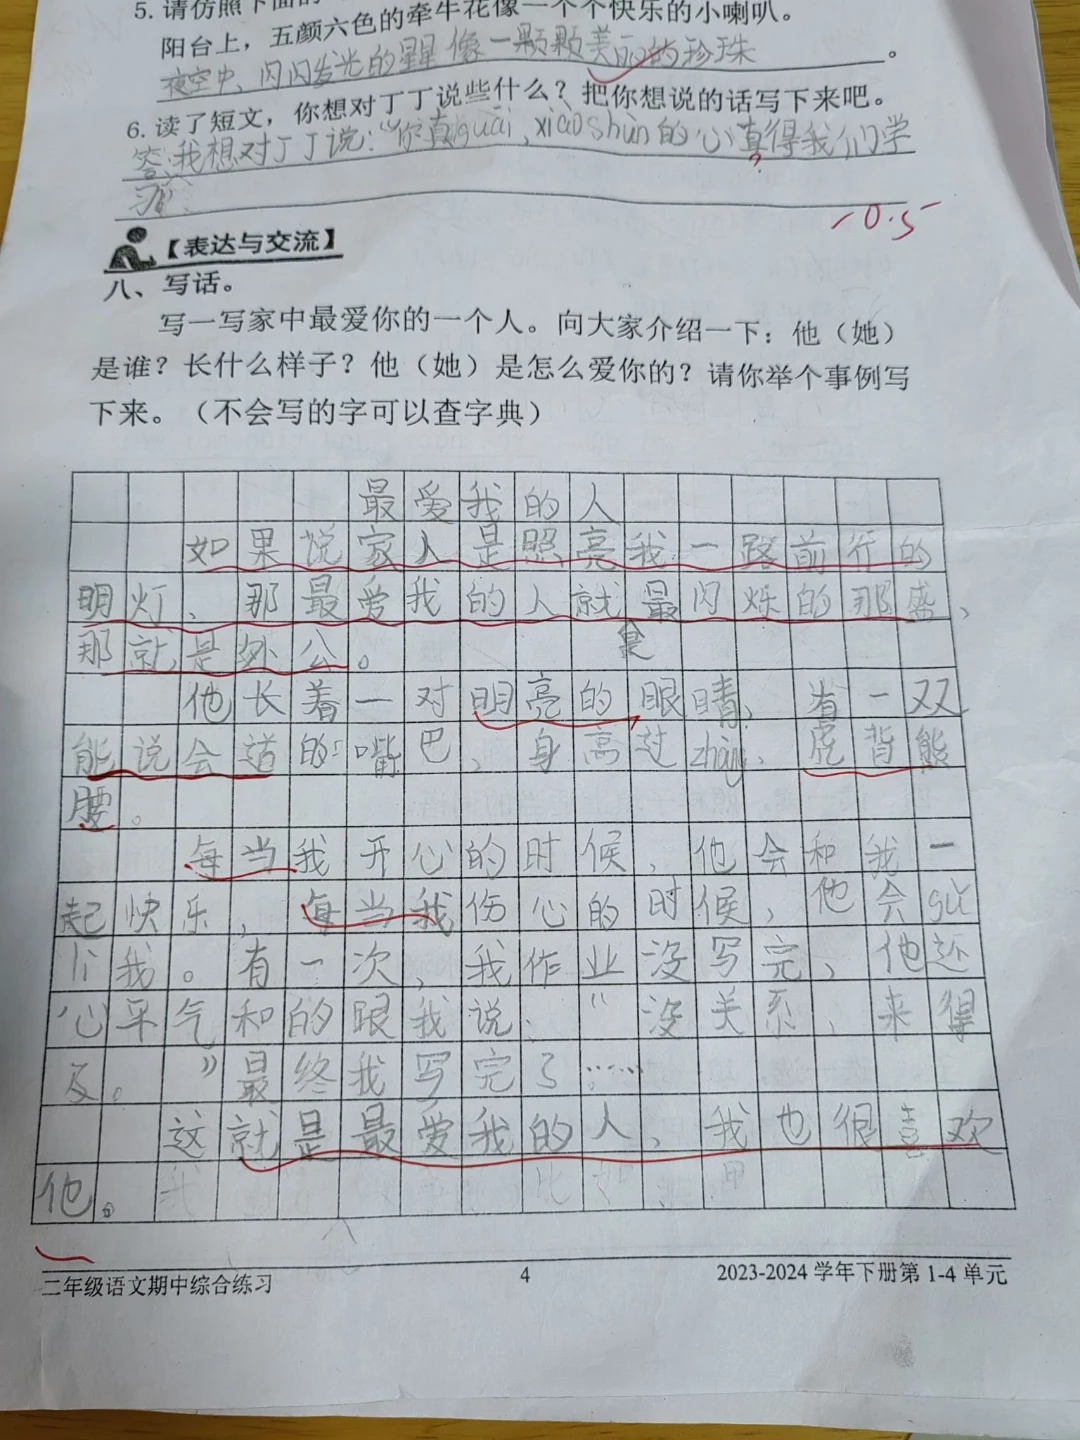 5. 请仿照下面的
阳台上，五颜六色的牵牛花像一个个快乐的小喇叭。
夜空中、闪闪发光的星星像一颗颗美丽的珍珠。
6. 读了短文，你想对丁丁说些什么？把你想说的话写下来吧。
答：我想对丁丁说：“你真guāi，xiào shùn的心真得我们学
习”
-0.5
【表达与交流】
八、写话。
写一写家中最爱你的一个人。向大家介绍一下：他（她）
是谁？长什么样子？他（她）是怎么爱你的？请你举个事例写
下来。（不会写的字可以查字典）
最爱我的人
如果说家人是照亮我一路前行的
明灯、那最爱我的人就是最闪烁的那盛，
那就是外公。
他长着一对明亮的眼睛，有一双
能说会道的嘴巴，身高过zhàng，虎背熊
腰。
每当我开心的时候，他会和我一
起快乐，每当我伤心的时候，他会gǔ
我。有一次，我作业没写完，他还
心平气和的跟我说：“没关系，来得
及。”最终我写完了……
这就是最爱我的人，我也很喜欢
他。
二年级语文期中综合练习
4
2023-2024 学年下册第 1-4 单元